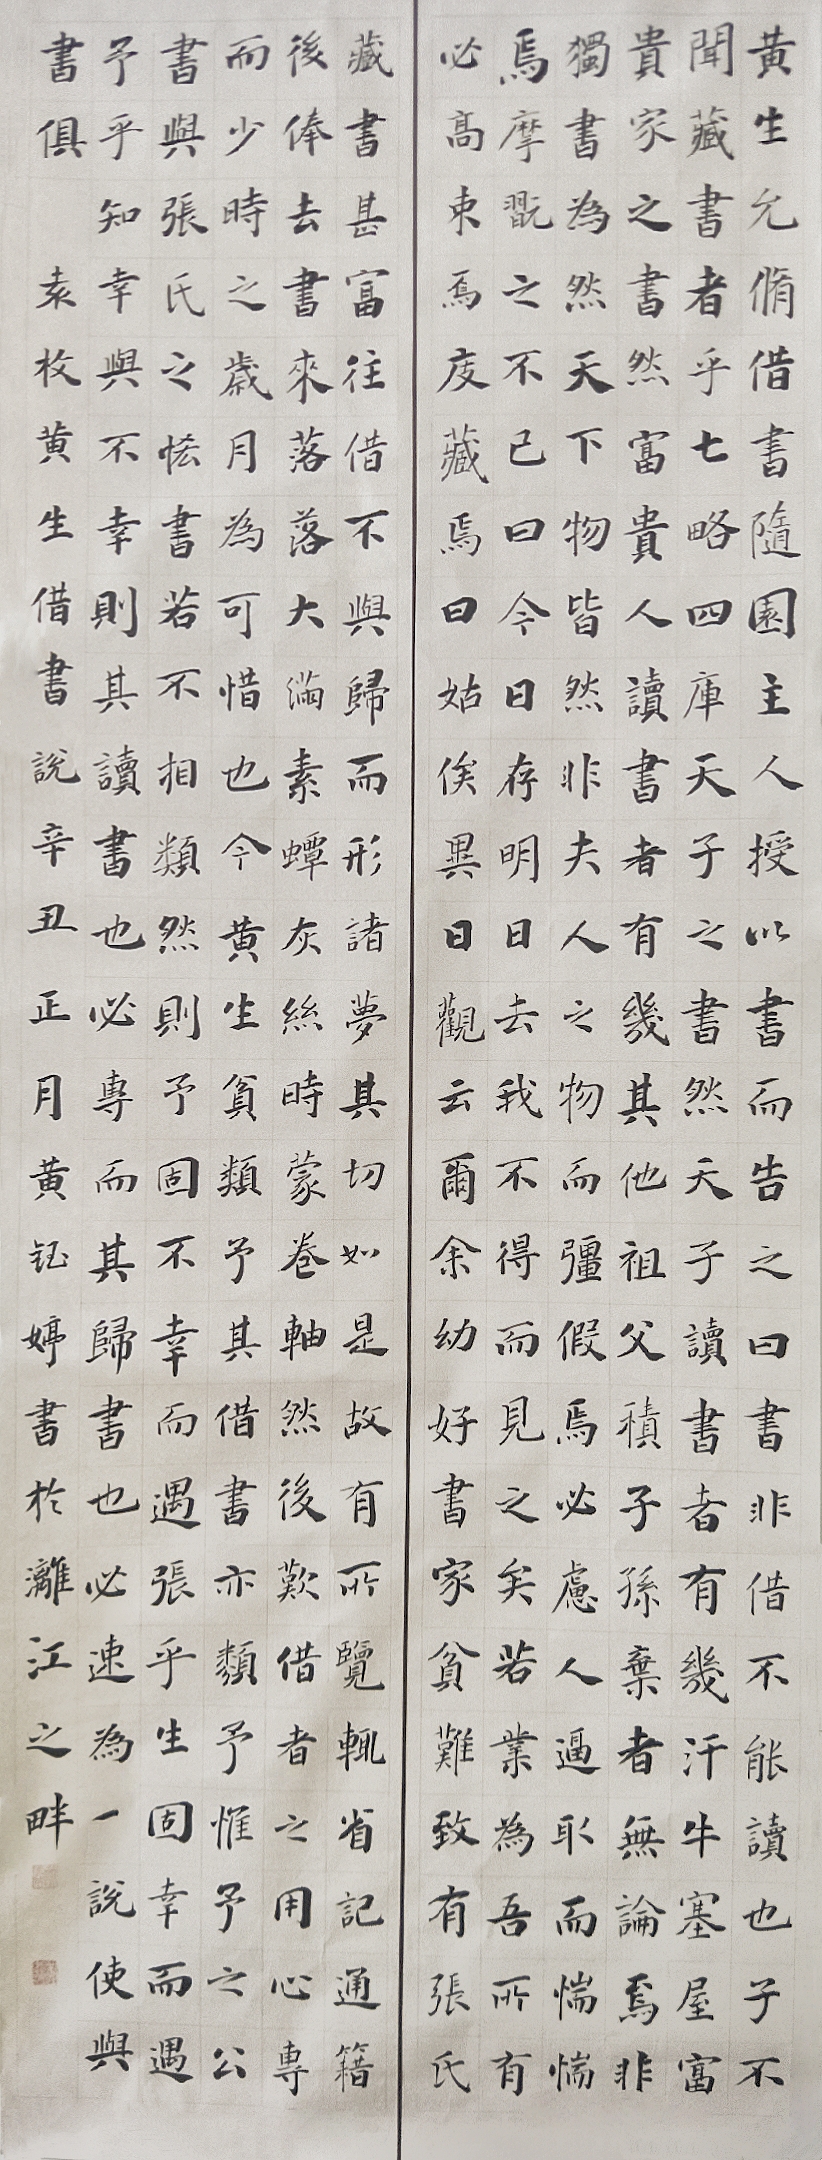 黃生允脩借書隨園主人授以書而告之曰書非借不能讀也子不
聞藏書者乎七略四庫天子之書然天子讀書者有幾汗牛塞屋富
貴家之書然富貴人讀書者有幾其他祖父積子孫棄者無論焉非
獨書為然天下物皆然非夫人之物而彊假焉必慮人逼取而惴惴
焉摩翫之不已曰今日存明日去我不得而見之矣若業為吾所有
必高束焉庋藏焉曰姑俟異日觀云爾余幼好書家貧難致有張氏
藏書甚富往借不與歸而形諸夢其切如是故有所覽輒省記通籍
後俸去書來落落大滿素蟫灰絲時蒙卷軸然後歎借者之用心專
而少時之歲月為可惜也今黄生貧類予其借書亦類予惟予之公
書與張氏之恡書若不相類然則予固不幸而遇張乎生固幸而遇
予乎知幸與不幸則其讀書也必專而其歸書也必速為一說使與
書俱 袁枚黄生借書說辛丑正月黄钰婷書於灕江之畔